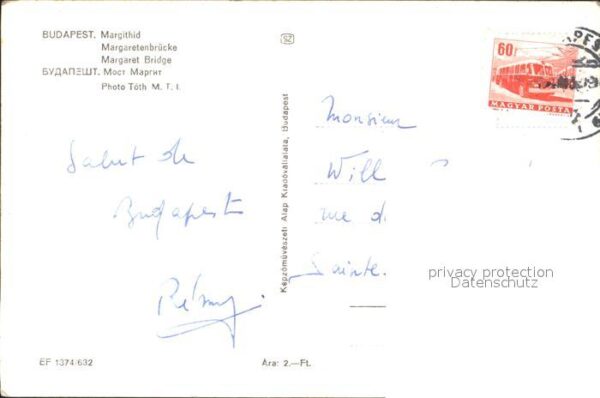 BUDAPEST. Margithid
Margaretenbrücke
Margaret Bridge
БУДАПЕШТ. Мост Маргит
Photo Tóth M. T. I.
Salut de
Budapest
Rémy.
EF 1374/632
Ára: 2.—Ft.
Képzőművészeti Alap Kiadóvállalata, Budapest
SZ
60f
MAGYAR POSTA
Monsieur
Will
rue d
Sainte
privacy protection
Datenschutz